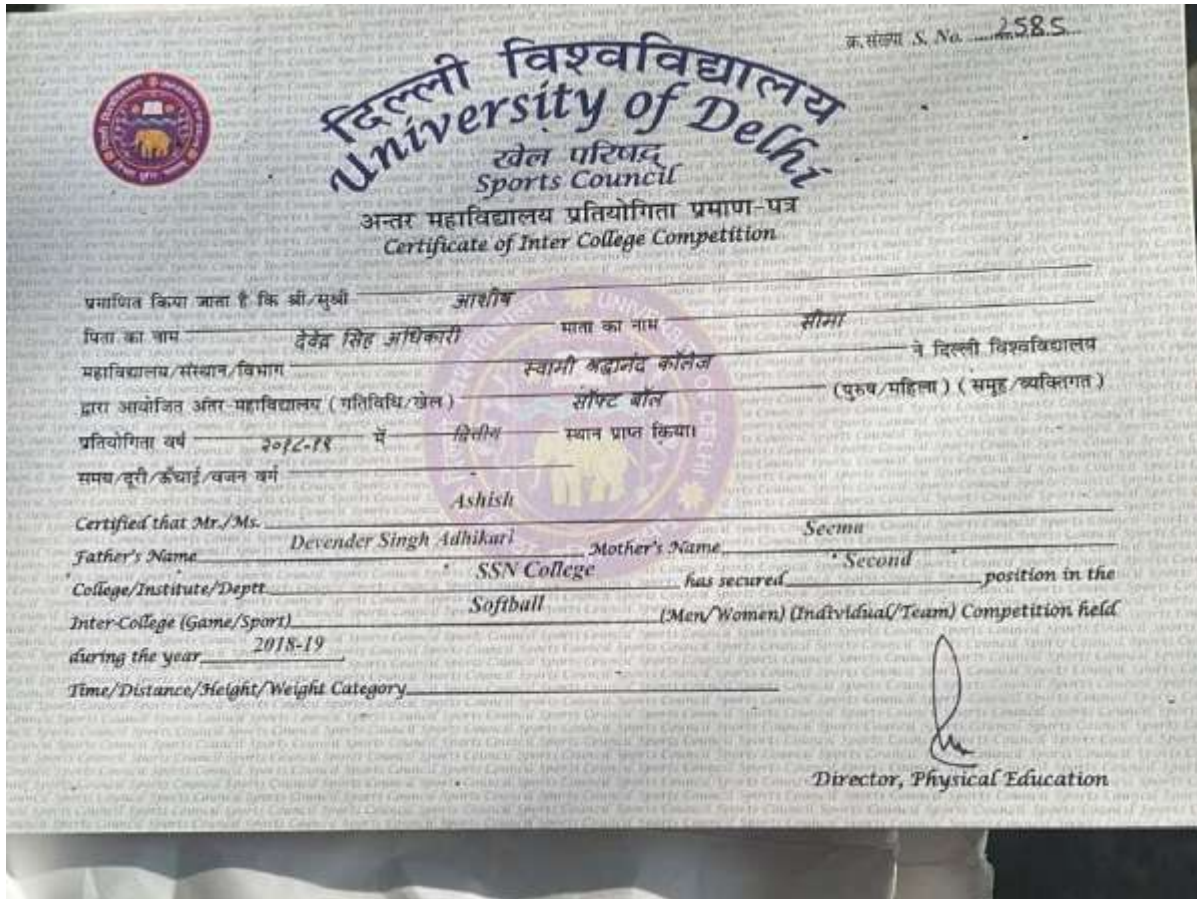 क्र.संख्या S. No. 2585
दिल्ली विश्वविद्यालय
University of Delhi
खेल परिषद्
Sports Council
अन्तर महाविद्यालय प्रतियोगिता प्रमाण-पत्र
Certificate of Inter College Competition
प्रमाणित किया जाता है कि श्री/सुश्री आशीष
पिता का नाम देवेंद्र सिंह अधिकारी माता का नाम सीमा
महाविद्यालय/संस्थान/विभाग स्वामी श्रद्धानंद कॉलेज ने दिल्ली विश्वविद्यालय
द्वारा आयोजित अंतर-महाविद्यालय (गतिविधि/खेल) सॉफ्ट बॉल (पुरुष/महिला) (समूह/व्यक्तिगत)
प्रतियोगिता वर्ष २०१८-१९ में द्वितीय स्थान प्राप्त किया।
समय/दूरी/ऊँचाई/वजन वर्ग
Certified that Mr./Ms. Ashish
Father's Name Devender Singh Adhikari Mother's Name Seema
College/Institute/Deptt. SSN College has secured Second position in the
Inter-College (Game/Sport) Softball (Men/Women) (Individual/Team) Competition held
during the year 2018-19
Time/Distance/Height/Weight Category
Director, Physical Education